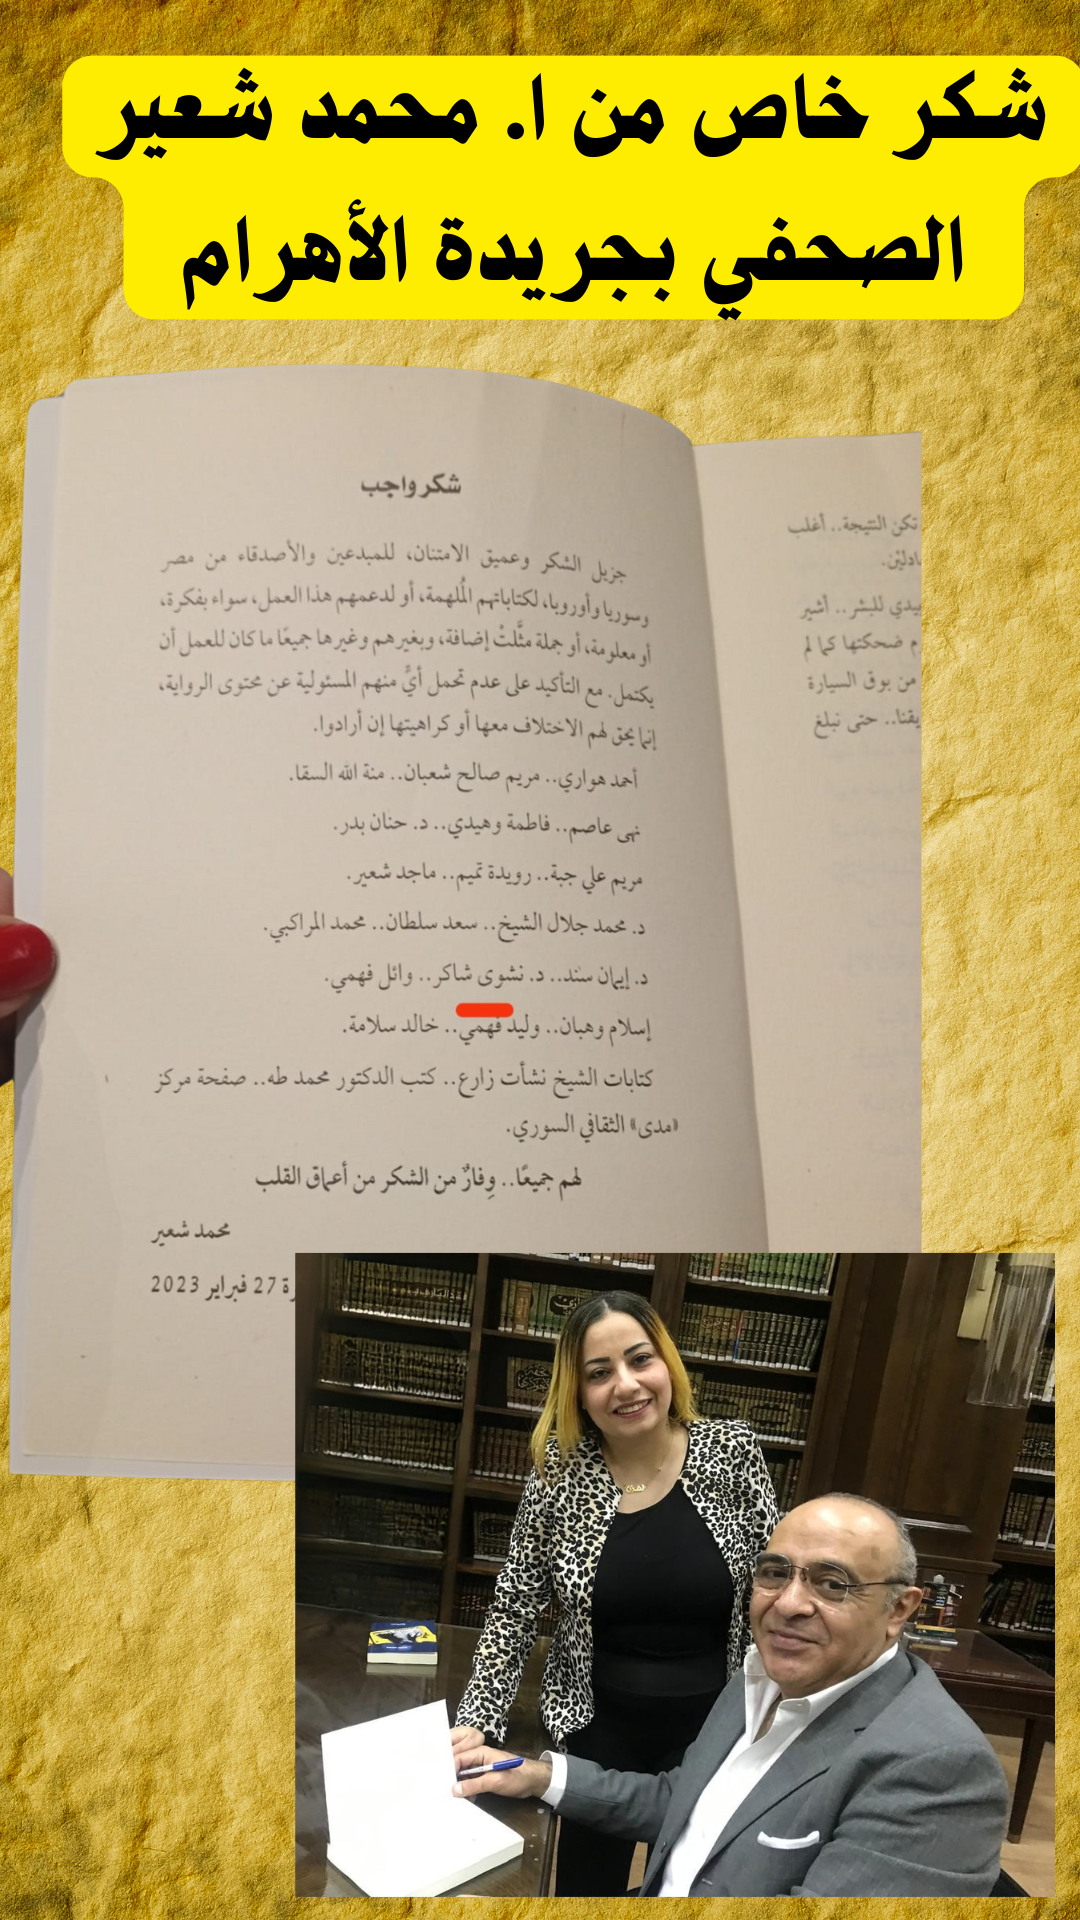 شكر خاص من ا. محمد شعير
الصحفي بجريدة الأهرام
شكر واجب
جزيل الشكر وعميق الامتنان، للمبدعين والأصدقاء من مصر
وسوريا وأوروبا، لكتاباتهم المُلهمة، أو لدعمهم هذا العمل، سواء بفكرة،
أو معلومة، أو جملة مثَّلتْ إضافة، وبغيرهم وغيرها جميعًا ما كان للعمل أن
يكتمل. مع التأكيد على عدم تحمل أيٍّ منهم المسئولية عن محتوى الرواية،
إنما يحق لهم الاختلاف معها أو كراهيتها إن أرادوا.
أحمد هواري.. مريم صالح شعبان.. منة الله السقا.
نهى عاصم.. فاطمة وهيدي.. د. حنان بدر.
مريم علي جبة.. رويدة تميم.. ماجد شعير.
د. محمد جلال الشيخ.. سعد سلطان.. محمد المراكبي.
د. إيمان سند.. د. نشوى شاكر.. وائل فهمي.
إسلام وهبان.. وليد فهمي.. خالد سلامة.
كتابات الشيخ نشأت زارع.. كتب الدكتور محمد طه.. صفحة مركز
«مدى» الثقافي السوري.
لهم جميعًا.. وِفارٌ من الشكر من أعماق القلب
محمد شعير
27 فبراير 2023
تكن النتيجة.. أغلب
يدي للبشر.. أشير
م ضحكتها كما لم
من بوق السيارة
يقنا.. حتى نبلغ